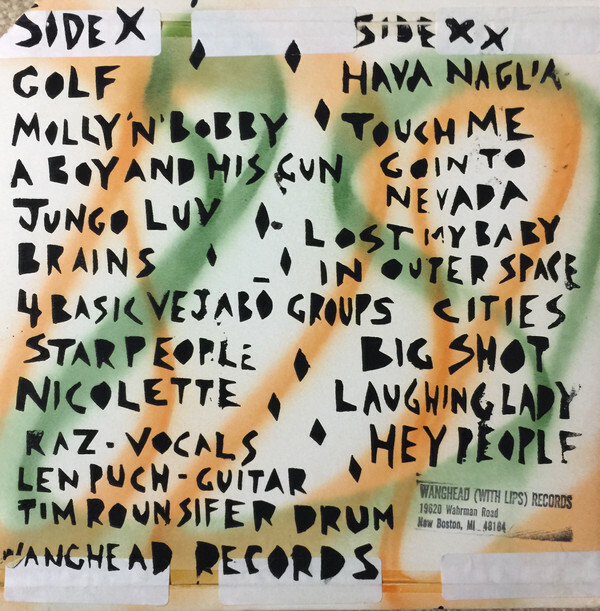 SIDE X
GOLF
MOLLY 'N' BOBBY
A BOY AND HIS GUN
JUNGO LUV
BRAINS
4 BASIC VEJABŌ GROUPS
STARPEOPLE
NICOLETTE
RAZ-VOCALS
LEN PUCH-GUITAR
TIM ROUNSIFER DRUM
WANGHEAD RECORDS
SIDE XX
HAVA NAGLIA
TOUCH ME
GOIN TO
NEVADA
LOST MY BABY
IN OUTER SPACE
CITIES
BIG SHOT
LAUGHING LADY
HEY PEOPLE
WANGHEAD (WITH LIPS) RECORDS
19620 Wahrman Road
New Boston, MI 48164